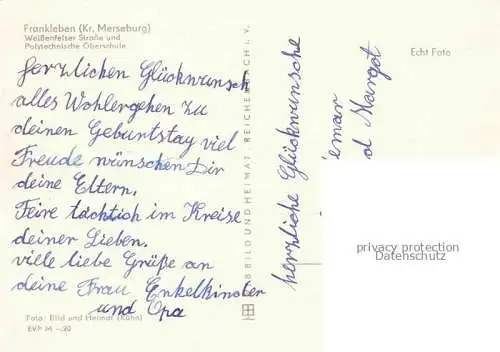 Frankleben (Kr. Merseburg)
Weißenfelser Straße und
Polytechnische Oberschule
Echt Foto
herzlichen Glückwunsch
alles Wohlergehen zu
deinen Geburtstag viel
Freude wünschen Dir
deine Eltern.
Feire tächtich im Kreise
deiner Lieben.
viele liebe Grüße an
deine Frau Enkelkinder
und Opa
Foto: Bild und Heimat (Kühn)
EVP M -.20
BILD UND HEIMAT REICHENBACH I. V.
herzliche Glückwunsche
d Margot
privacy protection
Datenschutz